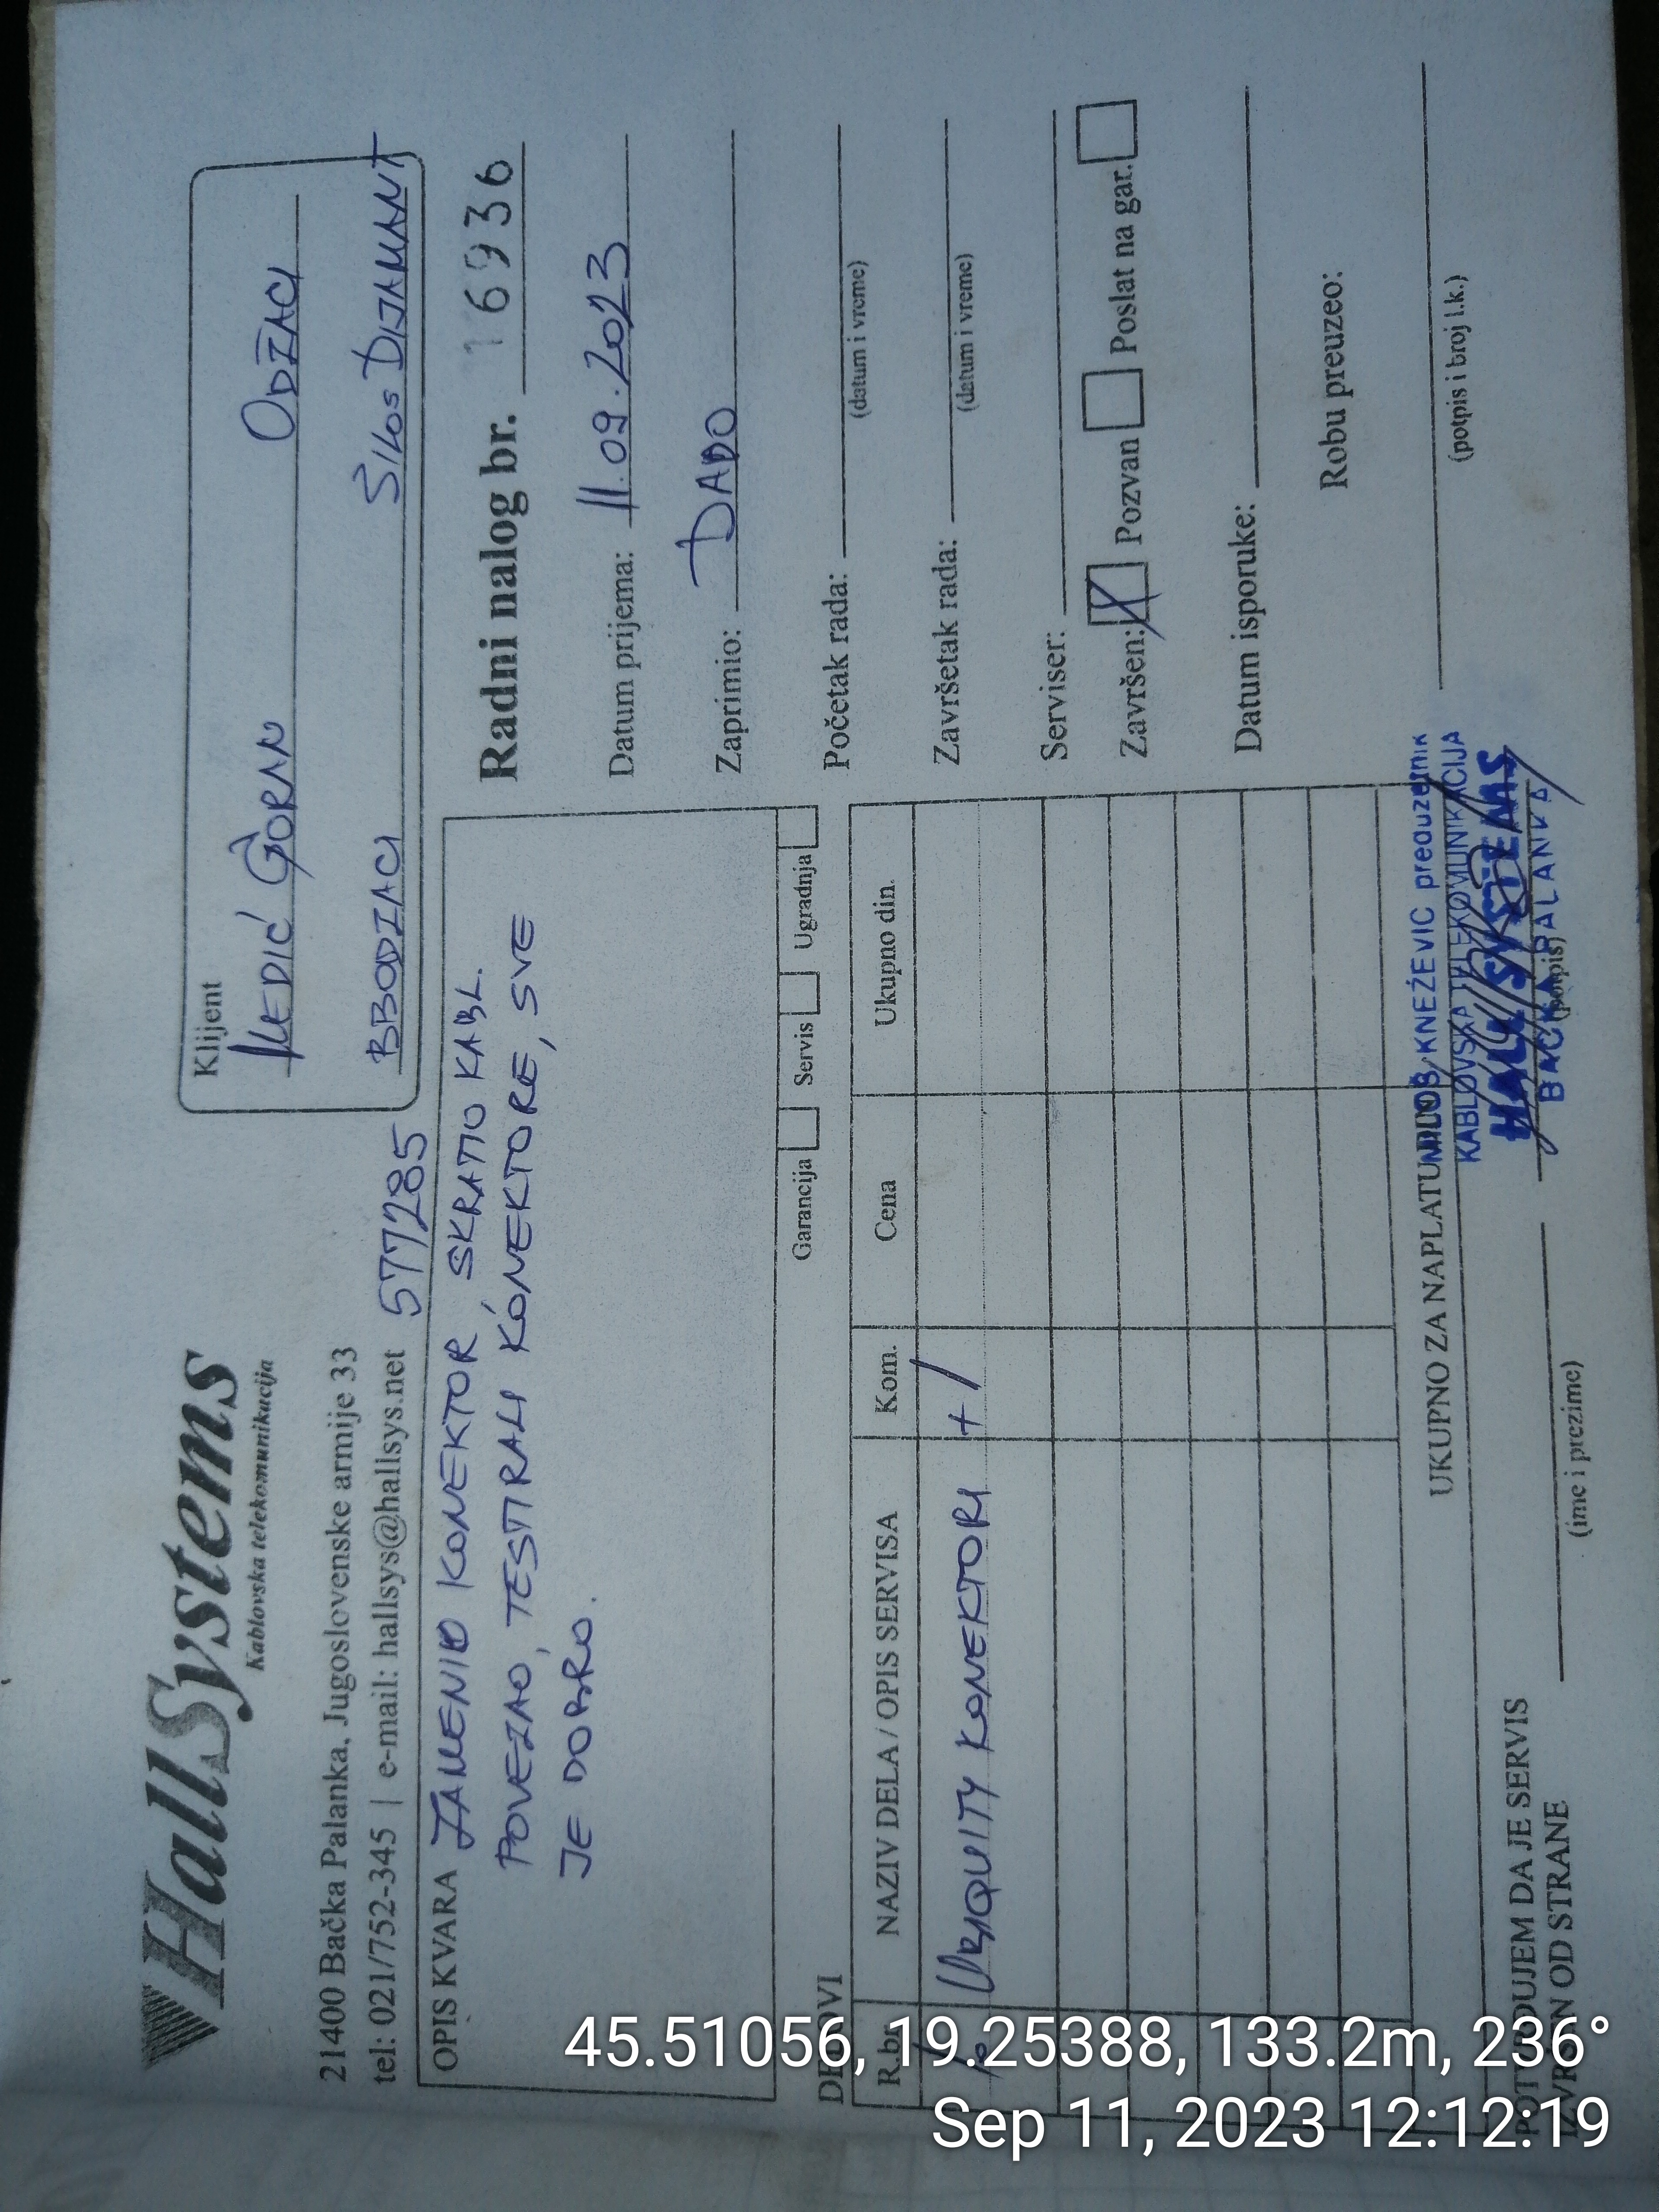 HallSystems
Kablovska telekomunikacija
21400 Bačka Palanka, Jugoslovenske armije 33
tel: 021/752-345 | e-mail: hallsys@hallsys.net
577285
Klijent
GORAN ODŽACI
BBODZACI SILOS DIJAMANT
OPIS KVARA ZAMENIO KONEKTOR SKRATIO KABL.
POVEZAO, TESTIRALI KONEKTORE, SVE
JE DOBRO.
Garancija Servis Ugradnja
Radni nalog br. 16936
Datum prijema: 11.09.2023
Zaprimio: DADO
Početak rada:
(datum i vreme)
Završetak rada:
(datum i vreme)
Serviser:
Završen: Pozvan Poslat na gar.
Datum isporuke:
Robu preuzeo:
(potpis i broj l.k.)
DELOVI
R.br. NAZIV DELA / OPIS SERVISA Kom. Cena Ukupno din.
UBIQUITY KONEKTORI + 1
UKUPNO ZA NAPLATU
KNEŽEVIĆ preduzetnik
KABLOVSKA TELEKOMUNIKACIJA
HALL SYSTEMS
BAČKA PALANKA
POTVRDUJEM DA JE SERVIS
IZVRŠEN OD STRANE
(ime i prezime)
(potpis)
45.51056, 19.25388, 133.2m, 236°
Sep 11, 2023 12:12:19